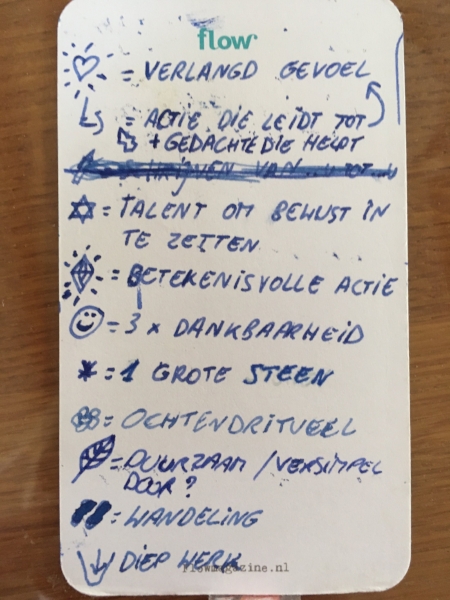 flow
= VERLANGD GEVOEL
= ACTIE DIE LEIDT TOT
+ GEDACHTE DIE HELPT
VAN ... TOT ...
= TALENT OM BEWUST IN
TE ZETTEN
= BETEKENISVOLLE ACTIE
= 3 x DANKBAARHEID
* = 1 GROTE STEEN
= OCHTENDRITUEEL
= DUURZAAM / VERSIMPEL
DOOR?
= WANDELING
DIEP WERK
flowmagazine.nl